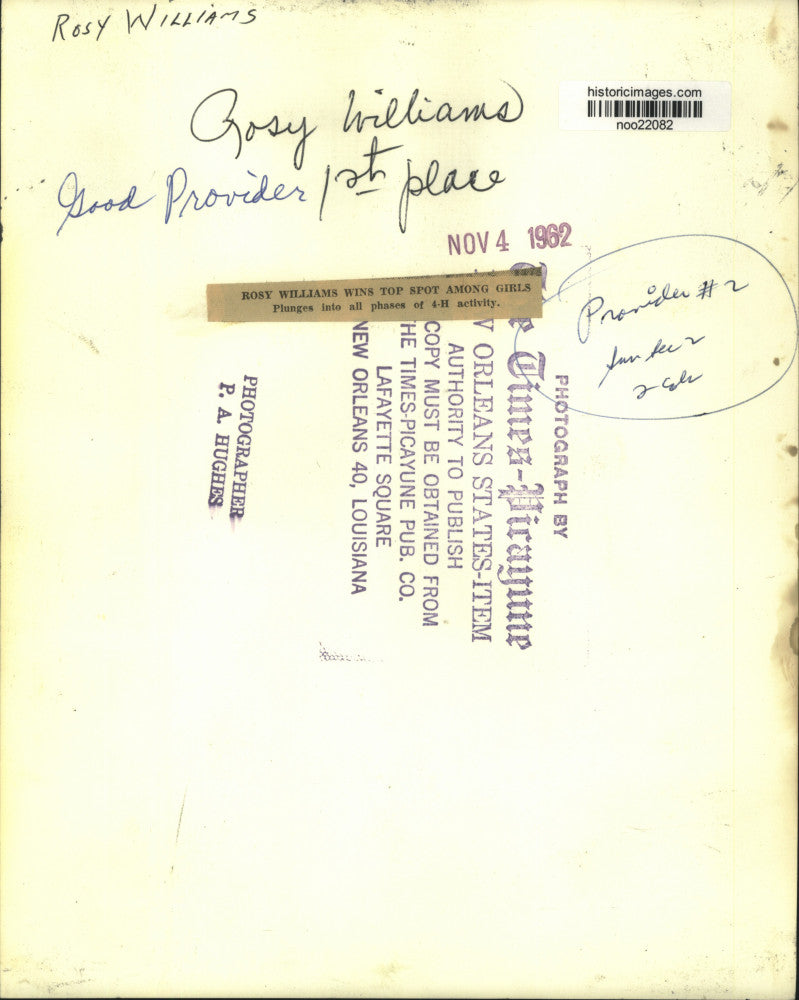 ROSY WILLIAMS
historicimages.com
noo22082
Rosy Williams
Good Provider 1st place
NOV 4 1962
ROSY WILLIAMS WINS TOP SPOT AMONG GIRLS
Plunges into all phases of 4-H activity.
Provider #2
2 col
PHOTOGRAPH BY
The Times-Picayune
ORLEANS STATES-ITEM
AUTHORITY TO PUBLISH
COPY MUST BE OBTAINED FROM
THE TIMES-PICAYUNE PUB. CO.
LAFAYETTE SQUARE
NEW ORLEANS 40, LOUISIANA
PHOTOGRAPHER
P. A. HUGHES